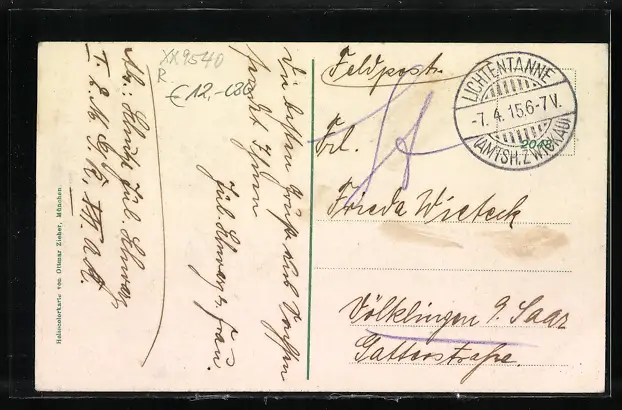 XX9540
R
€ 12,-
Feldpost.
LICHTENTANNE
-7. 4. 15. 6-7 V.
(AMTSH. ZWICKAU)
Frl.
Frieda Wieteck
Völklingen a. Saar
Gatterstraße.
Die besten Grüße aus Sachsen
sendet Ihnen
Jul. Schwarz, Frau.
Abs.: Jul. Schwarz
Heliocolorkarte von Ottmar Zieher, München.